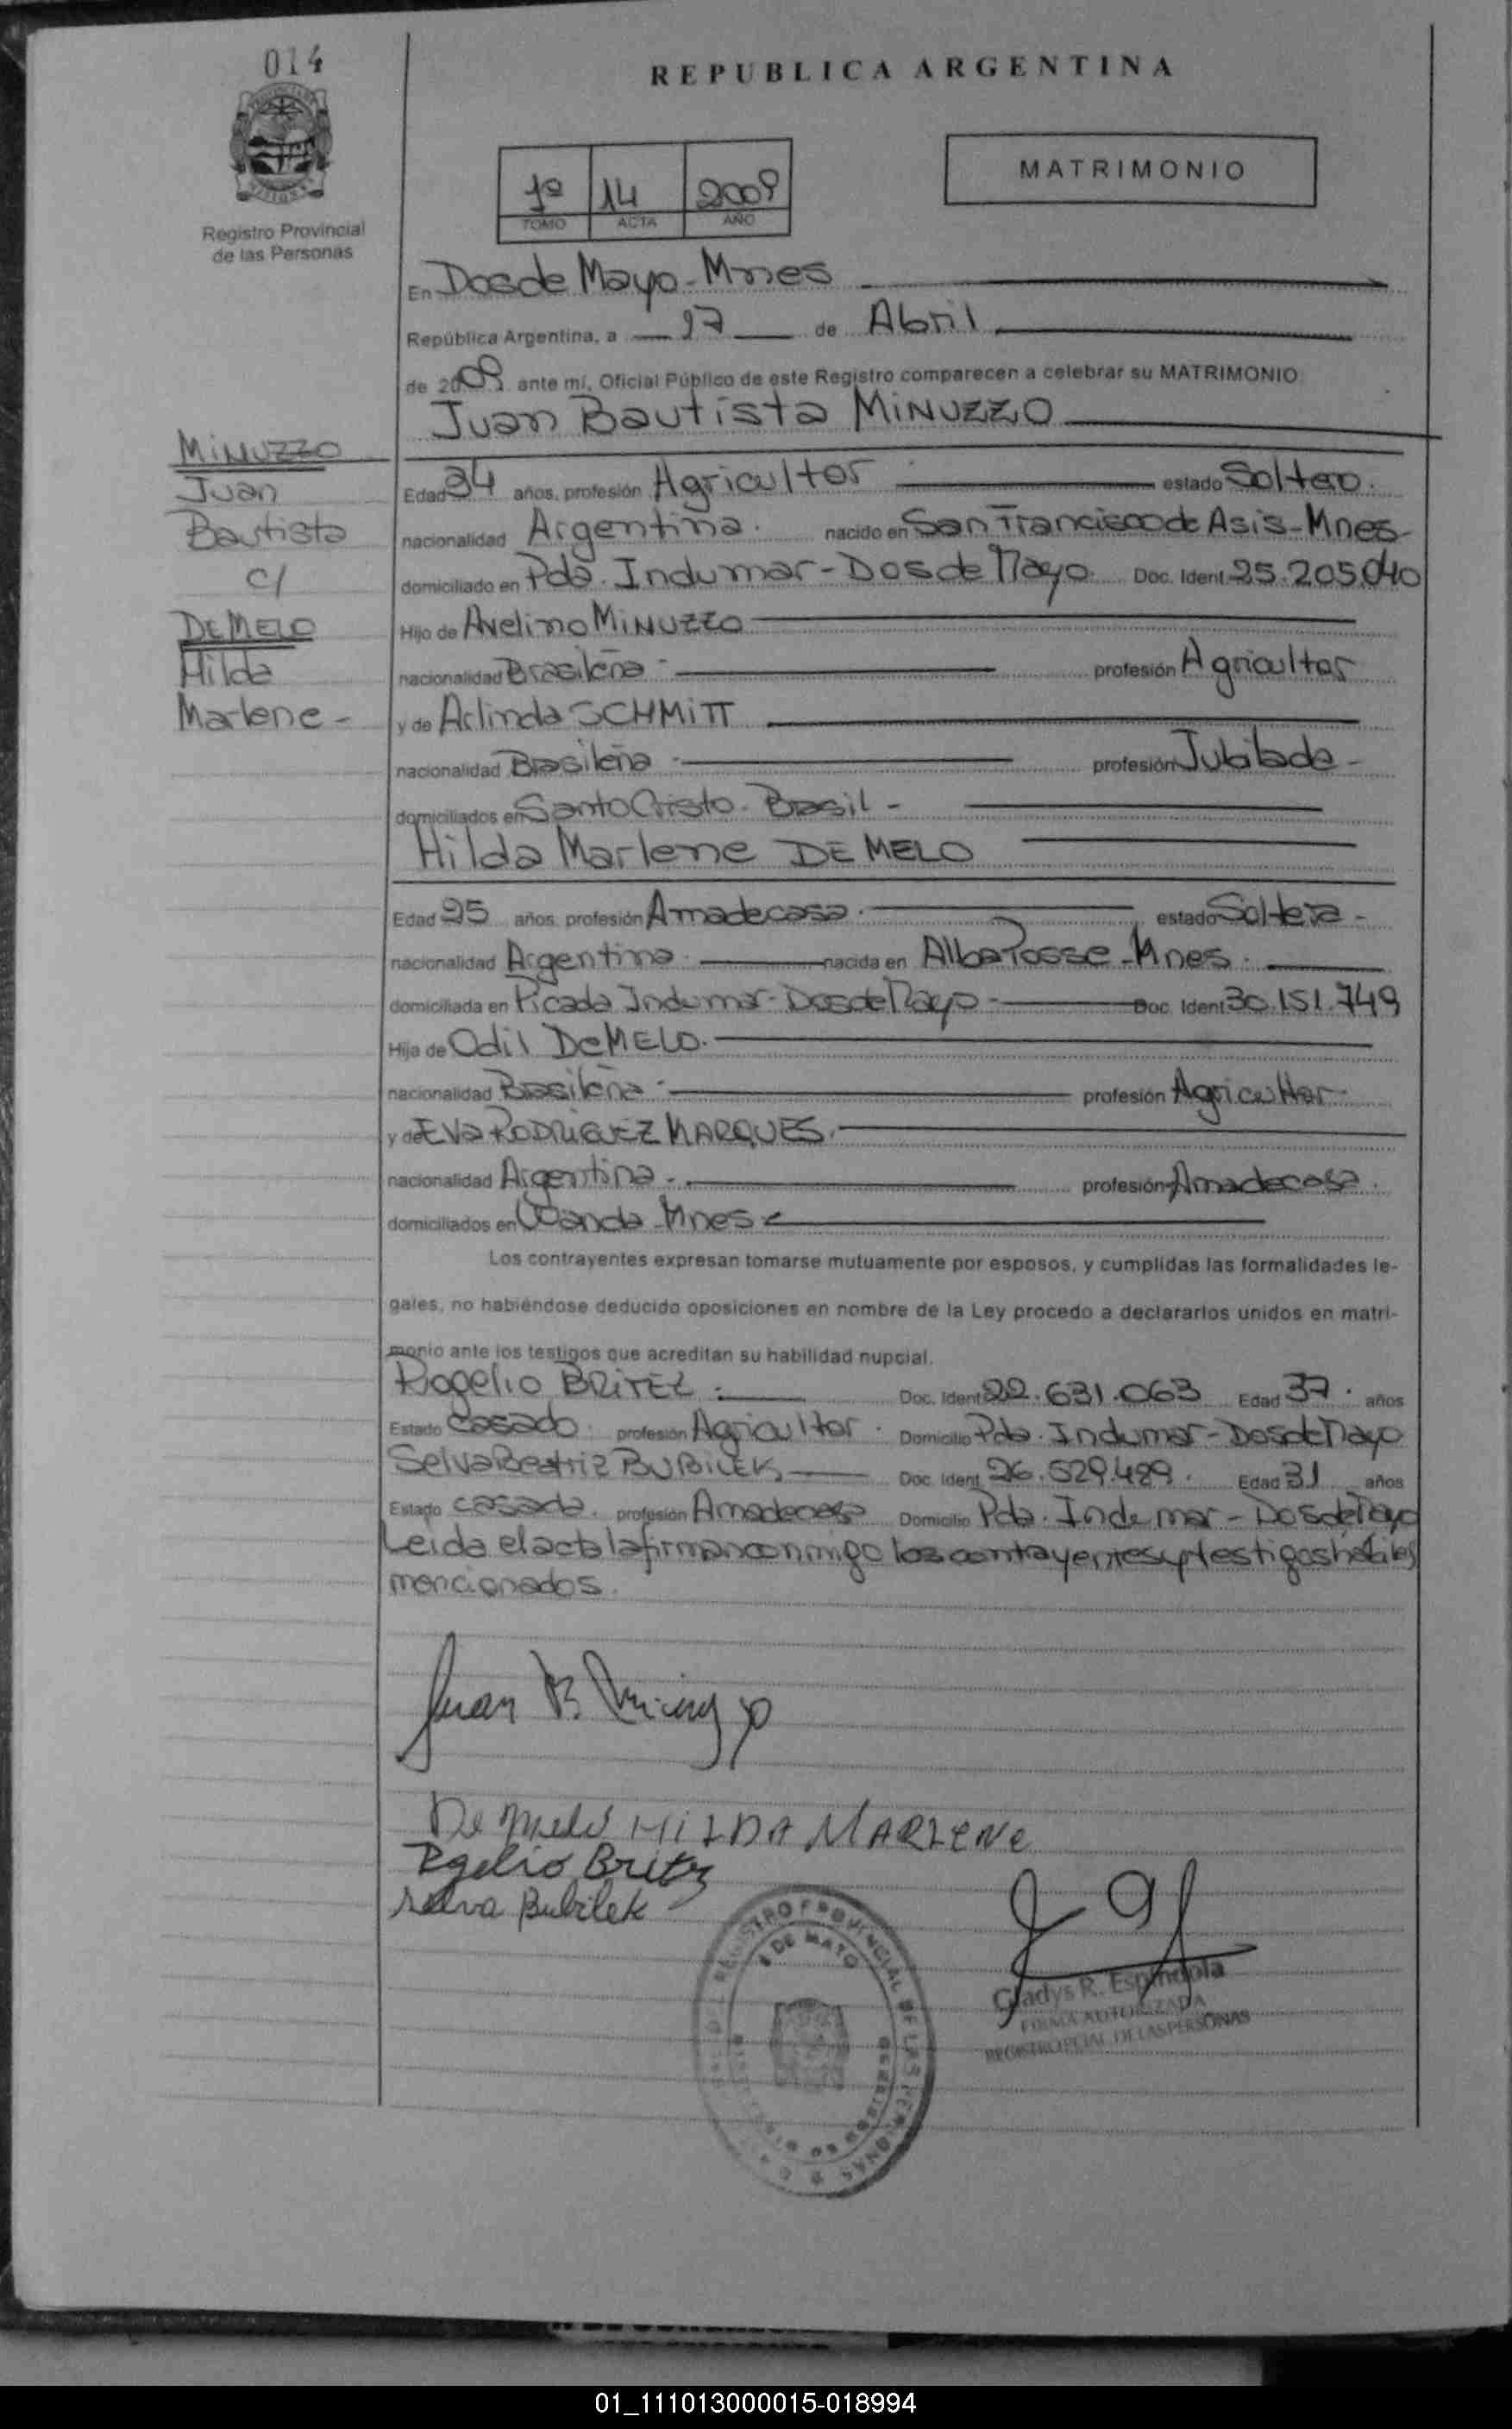 014
REPUBLICA ARGENTINA
MATRIMONIO
1º 14 2009
TOMO ACTA AÑO
Registro Provincial
de las Personas
En Dos de Mayo - Mnes
República Argentina, a 27 de Abril
de 2009 ante mí, Oficial Público de este Registro comparecen a celebrar su MATRIMONIO:
Juan Bautista MINUZZO
MINUZZO
Juan
Bautista
c/
DE MELO
Hilda
Marlene -
Edad 34 años, profesión Agricultor estado Soltero.
nacionalidad Argentina. nacido en San Francisco de Asis - Mnes
domiciliado en Pda. Indumar - Dos de Mayo Doc. Ident. 25.205.040
Hijo de Avelino MINUZZO
nacionalidad Brasileña - profesión Agricultor
y de Arlinda SCHMITT
nacionalidad Brasileña - profesión Jubilada -
domiciliados en Santo Cristo - Brasil -
Hilda Marlene DE MELO
Edad 25 años, profesión Ama de casa. estado Soltera -
nacionalidad Argentina. nacida en Alba Posse - Mnes.
domiciliada en Picada Indumar - Dos de Mayo - Doc. Ident. 30.151.749
Hija de Odil De MELO.
nacionalidad Brasileña - profesión Agricultor
y de Eva RODRIGUEZ MARQUES.
nacionalidad Argentina - profesión Ama de casa.
domiciliados en Wanda - Mnes -
Los contrayentes expresan tomarse mutuamente por esposos, y cumplidas las formalidades le-
gales, no habiéndose deducido oposiciones en nombre de la Ley procedo a declararlos unidos en matri-
monio ante los testigos que acreditan su habilidad nupcial.
Rogelio BRITEZ Doc. Ident. 22.631.063 Edad 37. años
Estado Casado. profesión Agricultor. Domicilio Pda. Indumar - Dos de Mayo
Selva Beatriz BUBILEK Doc. Ident. 26.529.489. Edad 31 años
Estado casada. profesión Ama de casa Domicilio Pda. Indumar - Dos de Mayo
Leida el acta la firman conmigo los contrayentes y testigos hábiles
mencionados.
Juan B Minuzzo
De Melo HILDA MARLENE
Rgelio Britez
Selva Bubilek
REGISTRO PROVINCIAL DE LAS PERSONAS
2 DE MAYO
Gladys R. Espindola
FIRMA AUTORIZADA
REGISTRO PCIAL. DE LAS PERSONAS
01_111013000015-018994